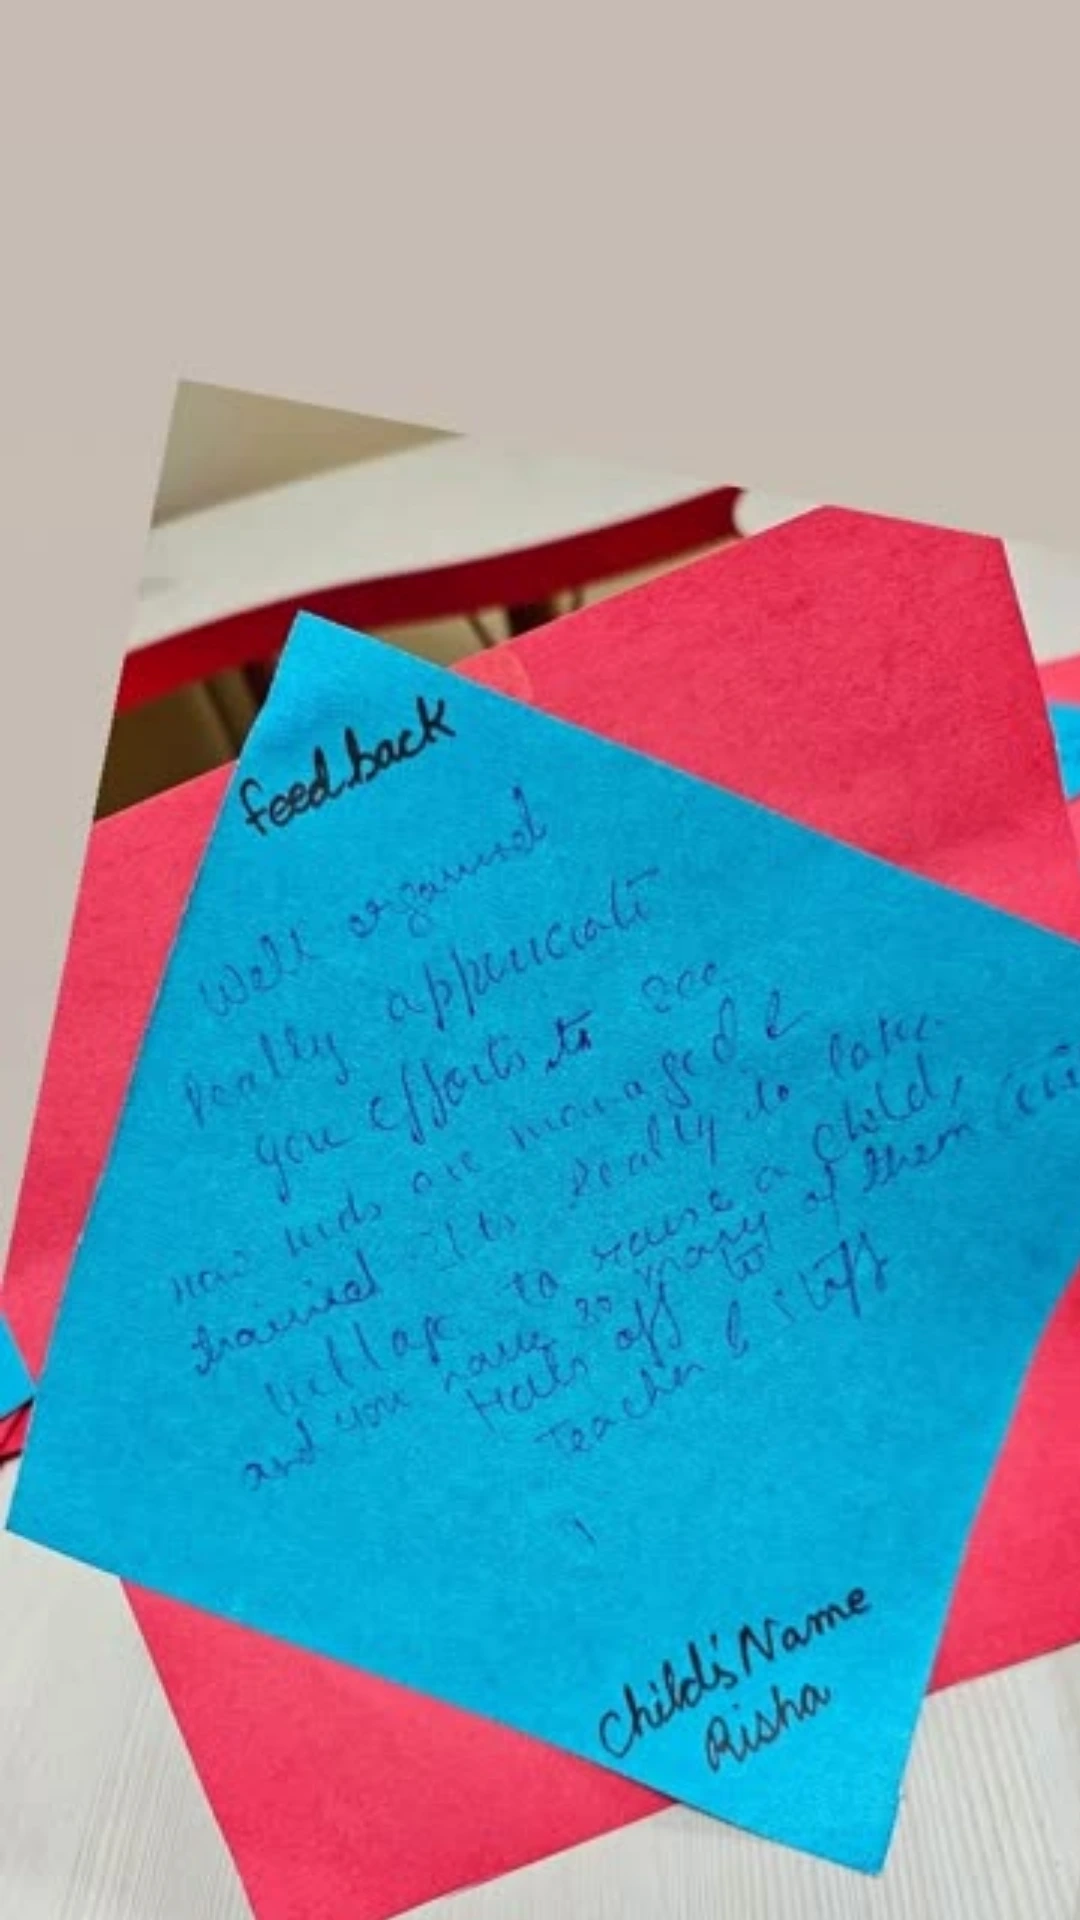 feedback
Well organised
Really appreciate
your efforts to see
how kids are managed &
trained. Its really do take
village to raise a child,
and you have so many of them
Hats off to
Teacher & Stuff
Child's Name
Risha